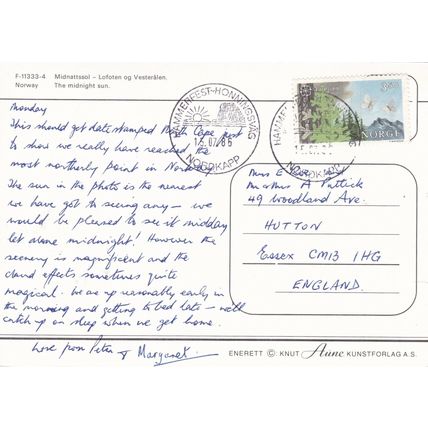 F-11333-4 Midnattssol – Lofoten og Vesterålen.
Norway The midnight sun.
Monday
This should get date stamped North Cape just
to show we really have reached the
most northerly point in Norway.
The sun in the photo is the nearest
we have got to seeing any – we
would be pleased to see it midday
let alone midnight! However the
scenery is magnificent and the
cloud effects sometimes quite
magical. We are up reasonably early in
the morning and getting to bed late – we'll
catch up on sleep when we get home.
Love from Peter & Margaret.
HAMMERFEST-HONNINGSVÅG
NORDKAPP
NORGE
Mrs E
Mr & Mrs A Pattick
49 Woodland Ave.
HUTTON
Essex CM13 1HG
ENGLAND.
ENERETT ©: KNUT Aune KUNSTFORLAG A.S.